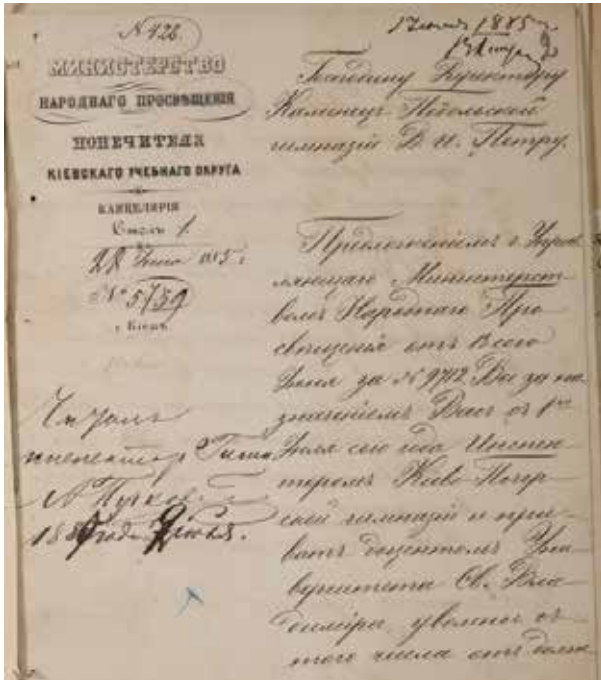 № 428
МИНИСТЕРСТВО
НАРОДНАГО ПРОСВѢЩЕНІЯ
ПОПЕЧИТЕЛЯ
КІЕВСКАГО УЧЕБНАГО ОКРУГА
КАНЦЕЛЯРІЯ
Столъ 1.
22 Іюня 1885 г.
№ 5759
г. Кіевъ.
Читалъ
инспекторъ
1885 года
1885
Господину Директору
Каменецъ-Подольской
гимназіи Д. Н. Петру.
Предложеніемъ г. Управ
ляющаго Министерст
вомъ Народнаго Про
свѣщенія отъ
Іюня за № 9712 Вы за на
значеніемъ Васъ съ 1го
Іюля сего года Инспек
торомъ Кіево-Печер
ской гимназіи и при
ватъ доцентомъ Уни
верситета Св. Вла
диміра, уволены съ
того числа отъ долж